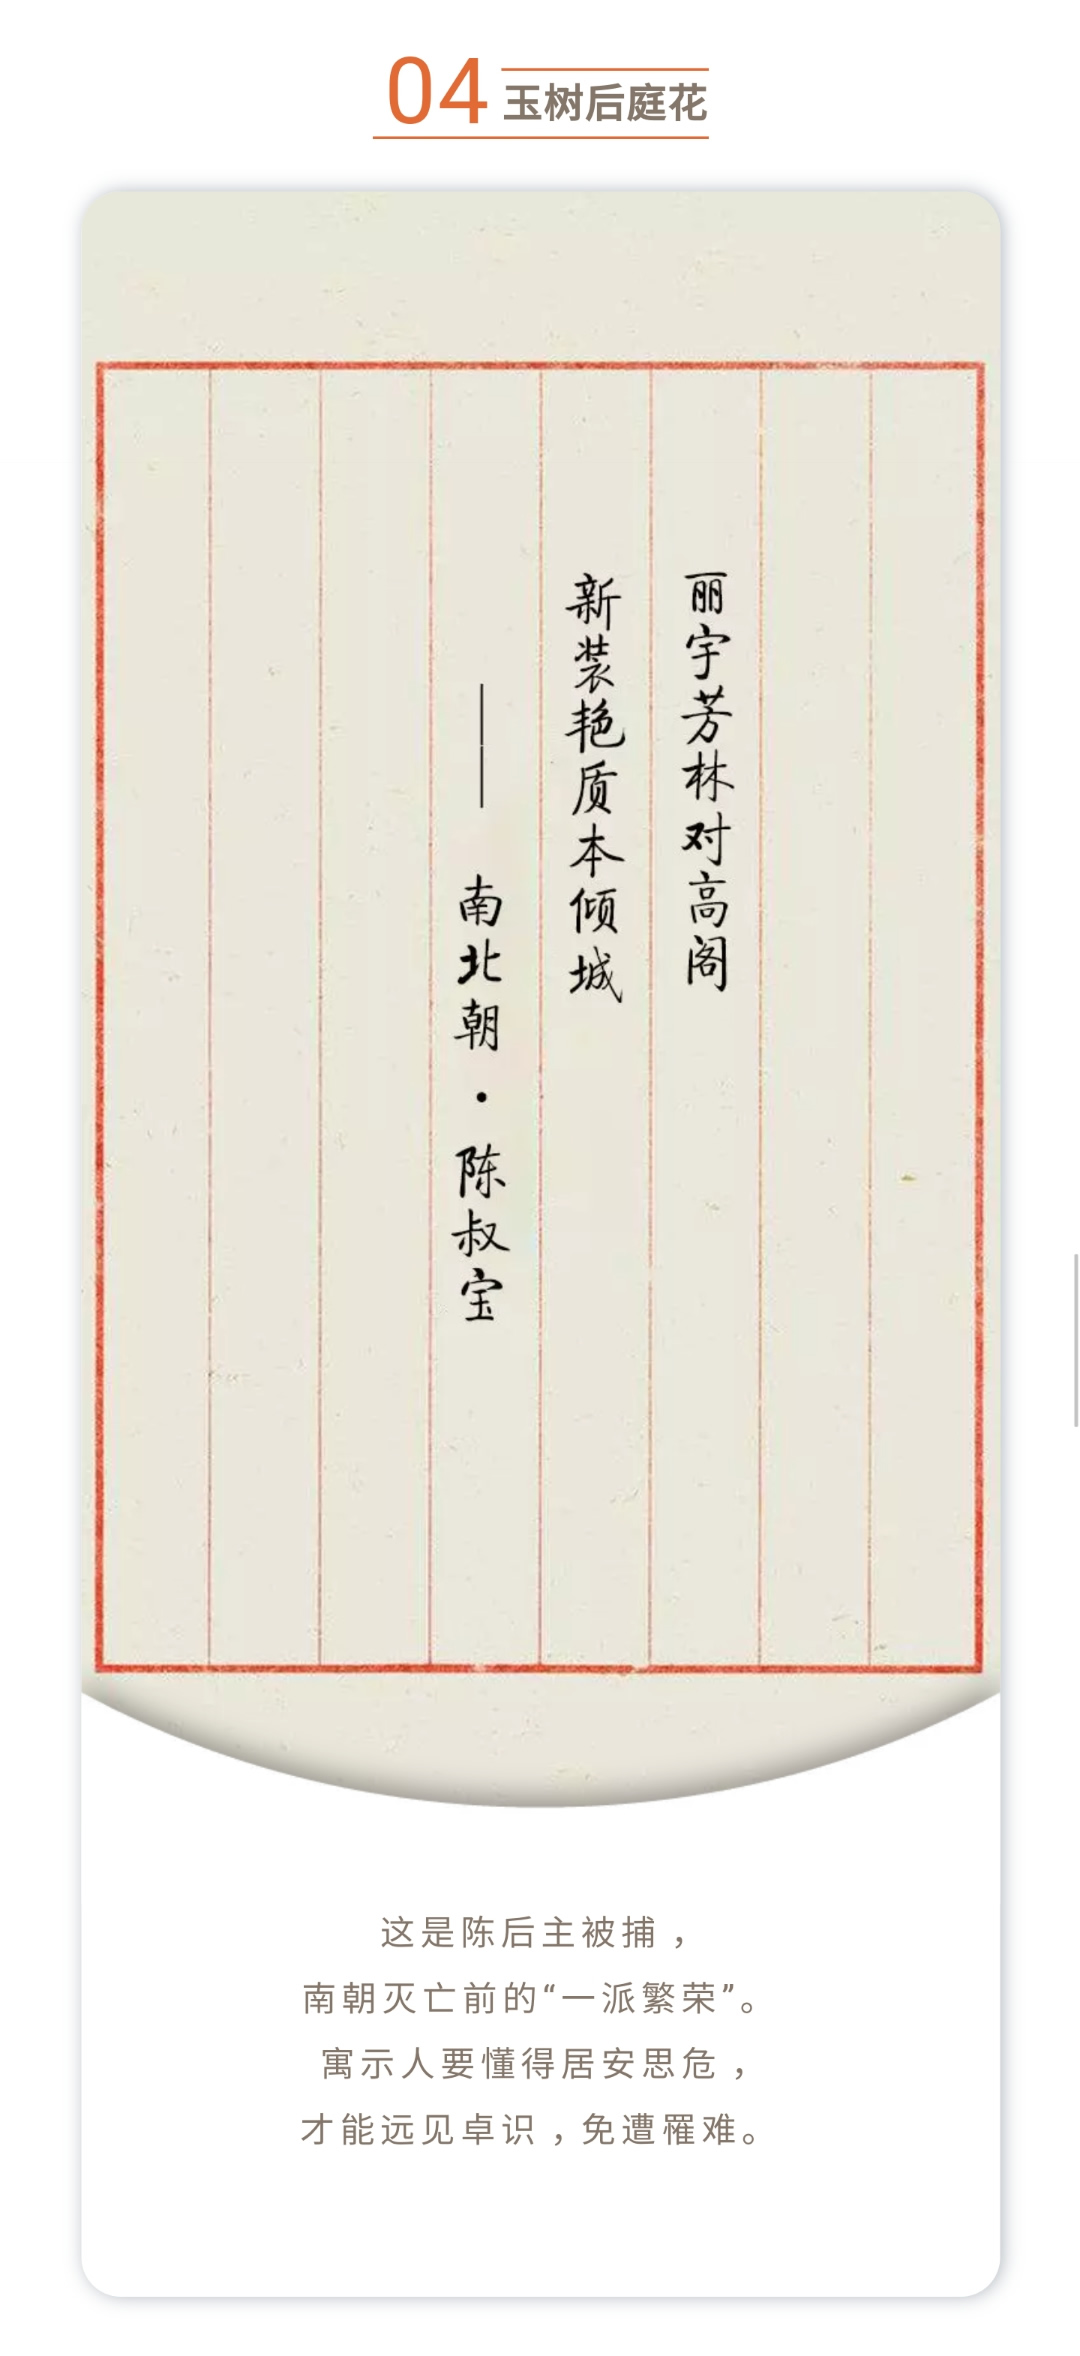 04 玉树后庭花
丽宇芳林对高阁
新装艳质本倾城
—— 南北朝·陈叔宝
这是陈后主被捕，
南朝灭亡前的“一派繁荣”。
寓示人要懂得居安思危，
才能远见卓识，免遭罹难。